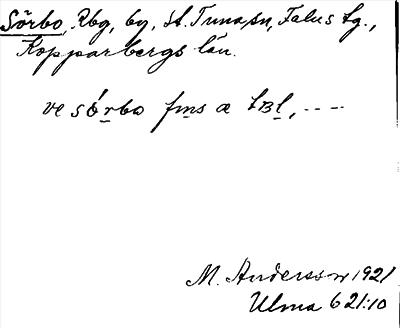 Sörbo, Rbg, by, St. Tuna sn, Falus tg.,
Kopparbergs län.
ve sórbo fins æ tBl, ----
M. Andersson 1921
Ulma 621:10